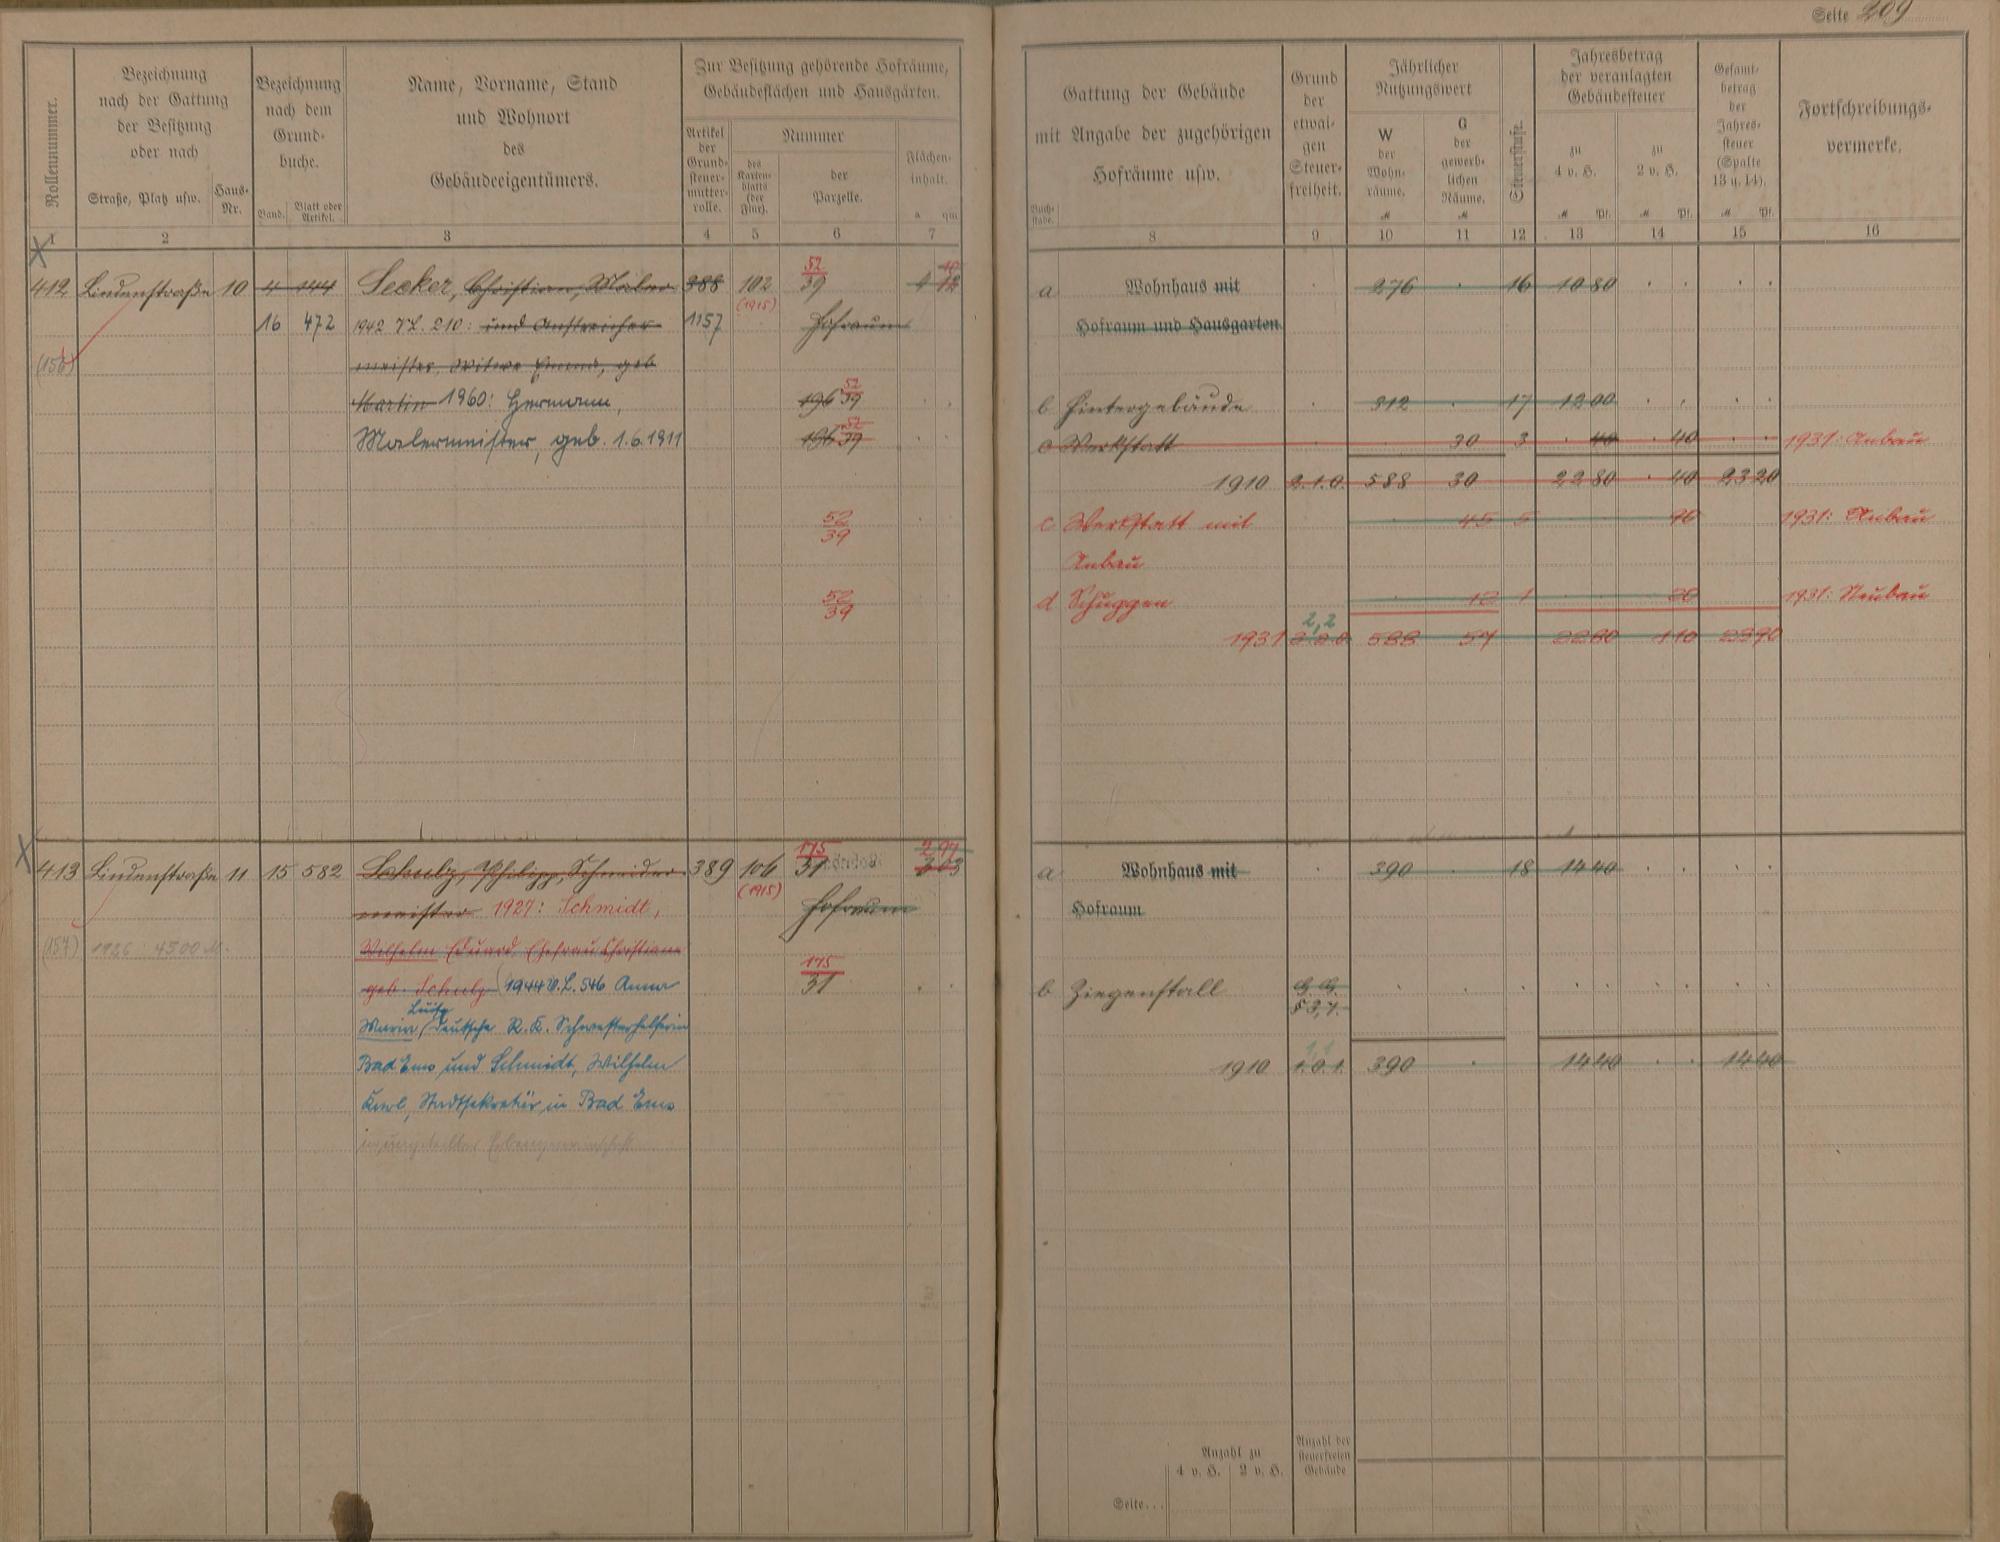 Seite 209
Rollennummer.
Bezeichnung
nach der Gattung
der Besitzung
oder nach
Straße, Platz usw.
Haus-
Nr.
Bezeichnung
nach dem
Grund-
buche.
Band.
Blatt oder
Artikel.
Name, Vorname, Stand
und Wohnort
des
Gebäudeeigentümers.
Zur Besitzung gehörende Hofräume,
Gebäudeflächen und Hausgärten.
Artikel
der
Grund-
steuer-
mutter-
rolle.
Nummer
des
Karten-
blatts
(der
Flur).
der
Parzelle.
Flächen-
inhalt.
a qm
1 2 3 4 5 6 7
Buch-
stabe.
Gattung der Gebäude
mit Angabe der zugehörigen
Hofräume usw.
Grund
der
etwai-
gen
Steuer-
freiheit.
Jährlicher
Nutzungswert
W
der
Wohn-
räume.
M
G
der
gewerb-
lichen
Räume.
M
Steuerstufe.
Jahresbetrag
der veranlagten
Gebäudesteuer
zu
4 v. H.
M Pf.
zu
2 v. H.
M Pf.
Gesamt-
betrag
der
Jahres-
steuer
(Spalte
13 u. 14).
M Pf.
Fortschreibungs-
vermerke.
8 9 10 11 12 13 14 15 16
412 Lindenstraße 10 4 144 Seeker, Christian, Maler 388 102 52/39 4 12
(1915)
16 472 1942 VL 210: und Anstreicher- 1157 Hofraum
(156) meister, Witwe Emma, geb
Martin 1960: Hermann, 196 52/39
Malermeister, geb. 1.6.1911 196 52/39
52/39
52/39
a Wohnhaus mit 276 16 10 80
Hofraum und Hausgarten
b Hintergebäude 312 17 12 00
c Werkstatt 30 3 40 40 1931: Anbau
1910 2.1.0. 588 30 22 80 40 23 20
c Werkstatt mit 45 5 90 1931: Anbau
Anbau
d Schuppen 12 1 20 1931: Neubau
2,2
1931 2.2.0 588 57 22 80 1 10 23 90
413 Lindenstraße 11 15 582 Schulz, Philipp, Schneider- 389 106 175/31 2 97 3 03
(1915)
meister 1927: Schmidt, Hofraum
(157) 1926: 4500 M.
Wilhelm Eduard Ehefrau Christiane
geb. Schulz (1944 V.L. 546 Anna 175/31
Luise
Maria, deutsche R. K. Schwesterhelferin
Bad Ems und Schmidt, Wilhelm
Karl, Stadtsekretär in Bad Ems
in ungeteilter Erbengemeinschaft
a Wohnhaus mit 390 18 14 40
Hofraum
b Ziegenstall G. G.
§ 3,7.
1,1
1910 1.0.1. 390 14 40 14 40
Anzahl zu
4 v. H. 2 v. H.
Anzahl der
steuerfreien
Gebäude
Seite...